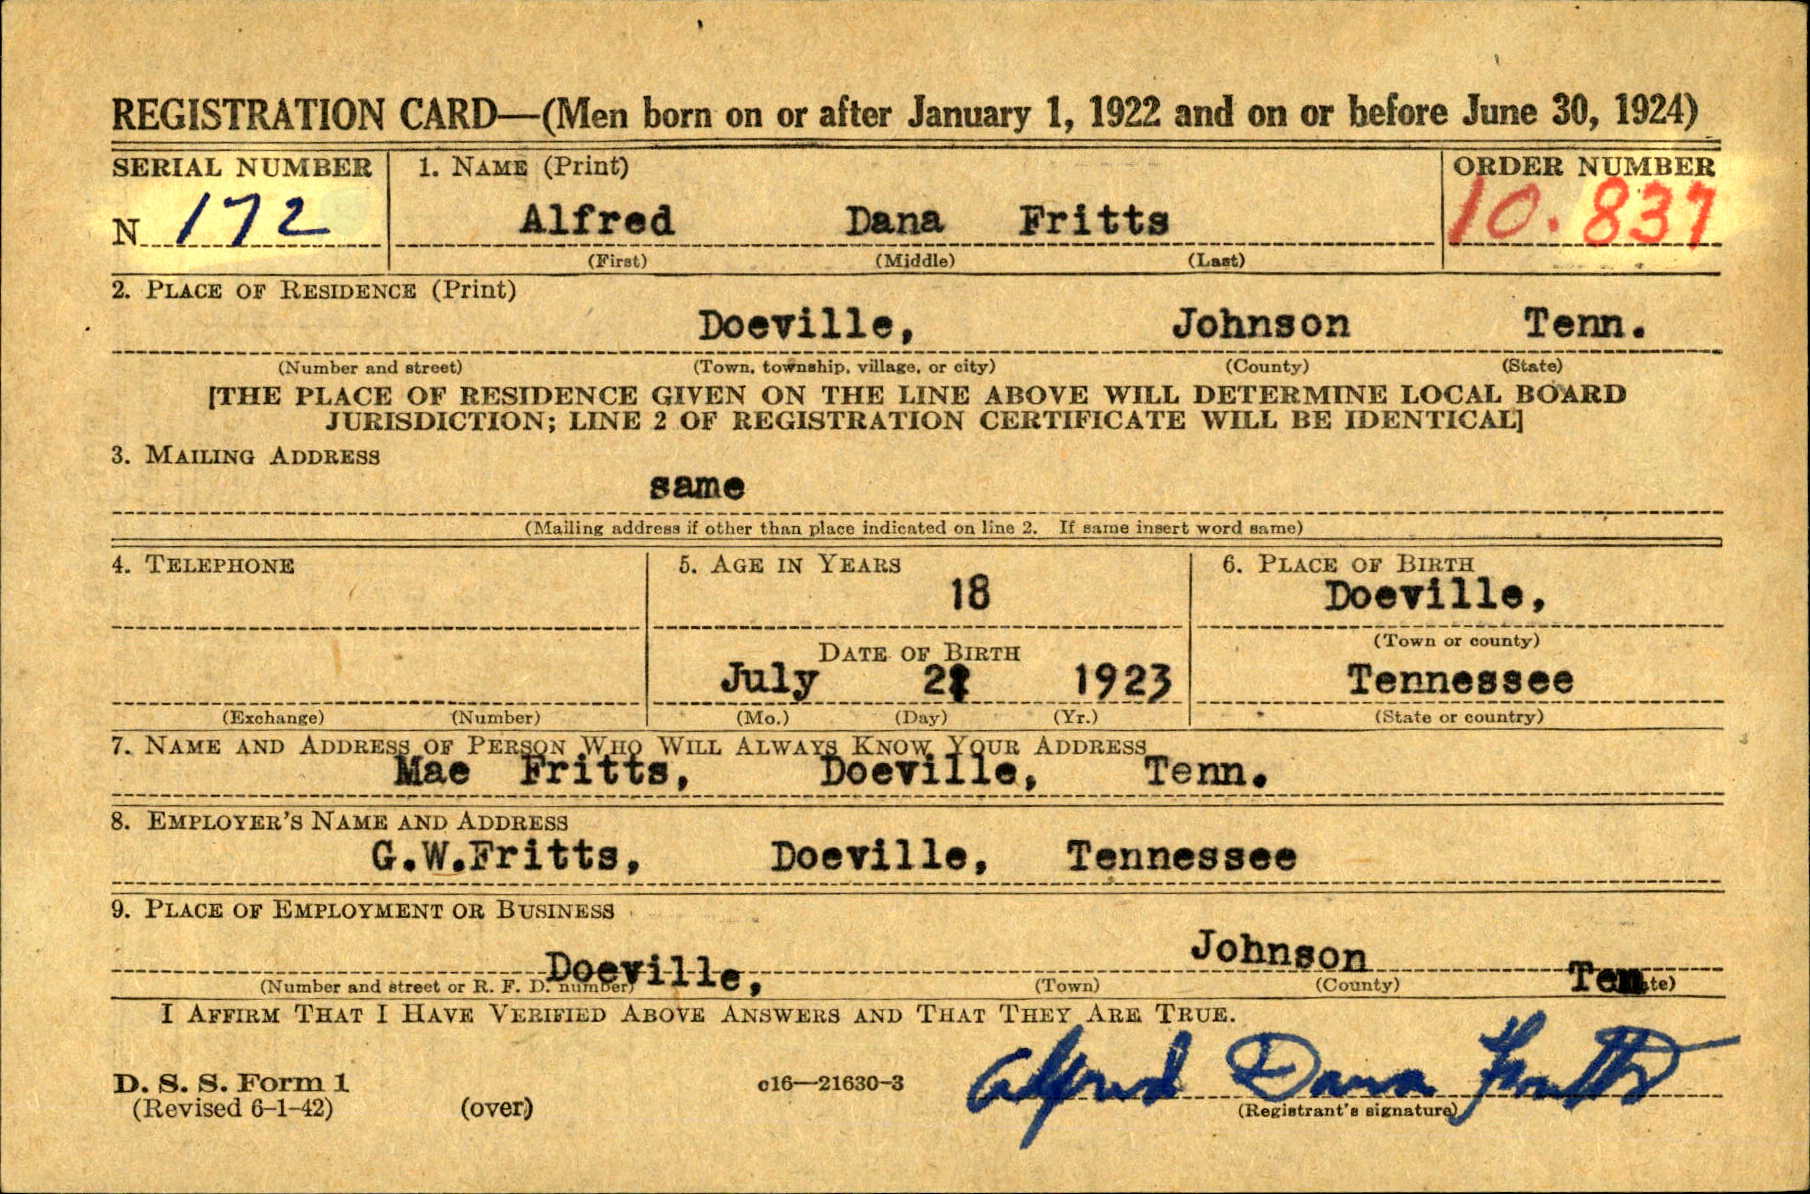 REGISTRATION CARD—(Men born on or after January 1, 1922 and on or before June 30, 1924)
SERIAL NUMBER 1. NAME (Print) ORDER NUMBER
N 172 Alfred Dana Fritts 10.837
(First) (Middle) (Last)
2. PLACE OF RESIDENCE (Print)
Doeville, Johnson Tenn.
(Number and street) (Town, township, village, or city) (County) (State)
[THE PLACE OF RESIDENCE GIVEN ON THE LINE ABOVE WILL DETERMINE LOCAL BOARD
JURISDICTION; LINE 2 OF REGISTRATION CERTIFICATE WILL BE IDENTICAL]
3. MAILING ADDRESS
same
(Mailing address if other than place indicated on line 2. If same insert word same)
4. TELEPHONE 5. AGE IN YEARS 6. PLACE OF BIRTH
18 Doeville,
DATE OF BIRTH (Town or county)
July 1923 Tennessee
(Exchange) (Number) (Mo.) (Day) (Yr.) (State or country)
7. NAME AND ADDRESS OF PERSON WHO WILL ALWAYS KNOW YOUR ADDRESS
Mae Fritts, Doeville, Tenn.
8. EMPLOYER'S NAME AND ADDRESS
G.W.Fritts, Doeville, Tennessee
9. PLACE OF EMPLOYMENT OR BUSINESS
Doeville, Johnson
(Number and street or R. F. D. number) (Town) (County)
I AFFIRM THAT I HAVE VERIFIED ABOVE ANSWERS AND THAT THEY ARE TRUE.
D. S. S. Form 1 c16—21630-3 Alfred Dana Fritts
(Revised 6-1-42) (over) (Registrant's signature)